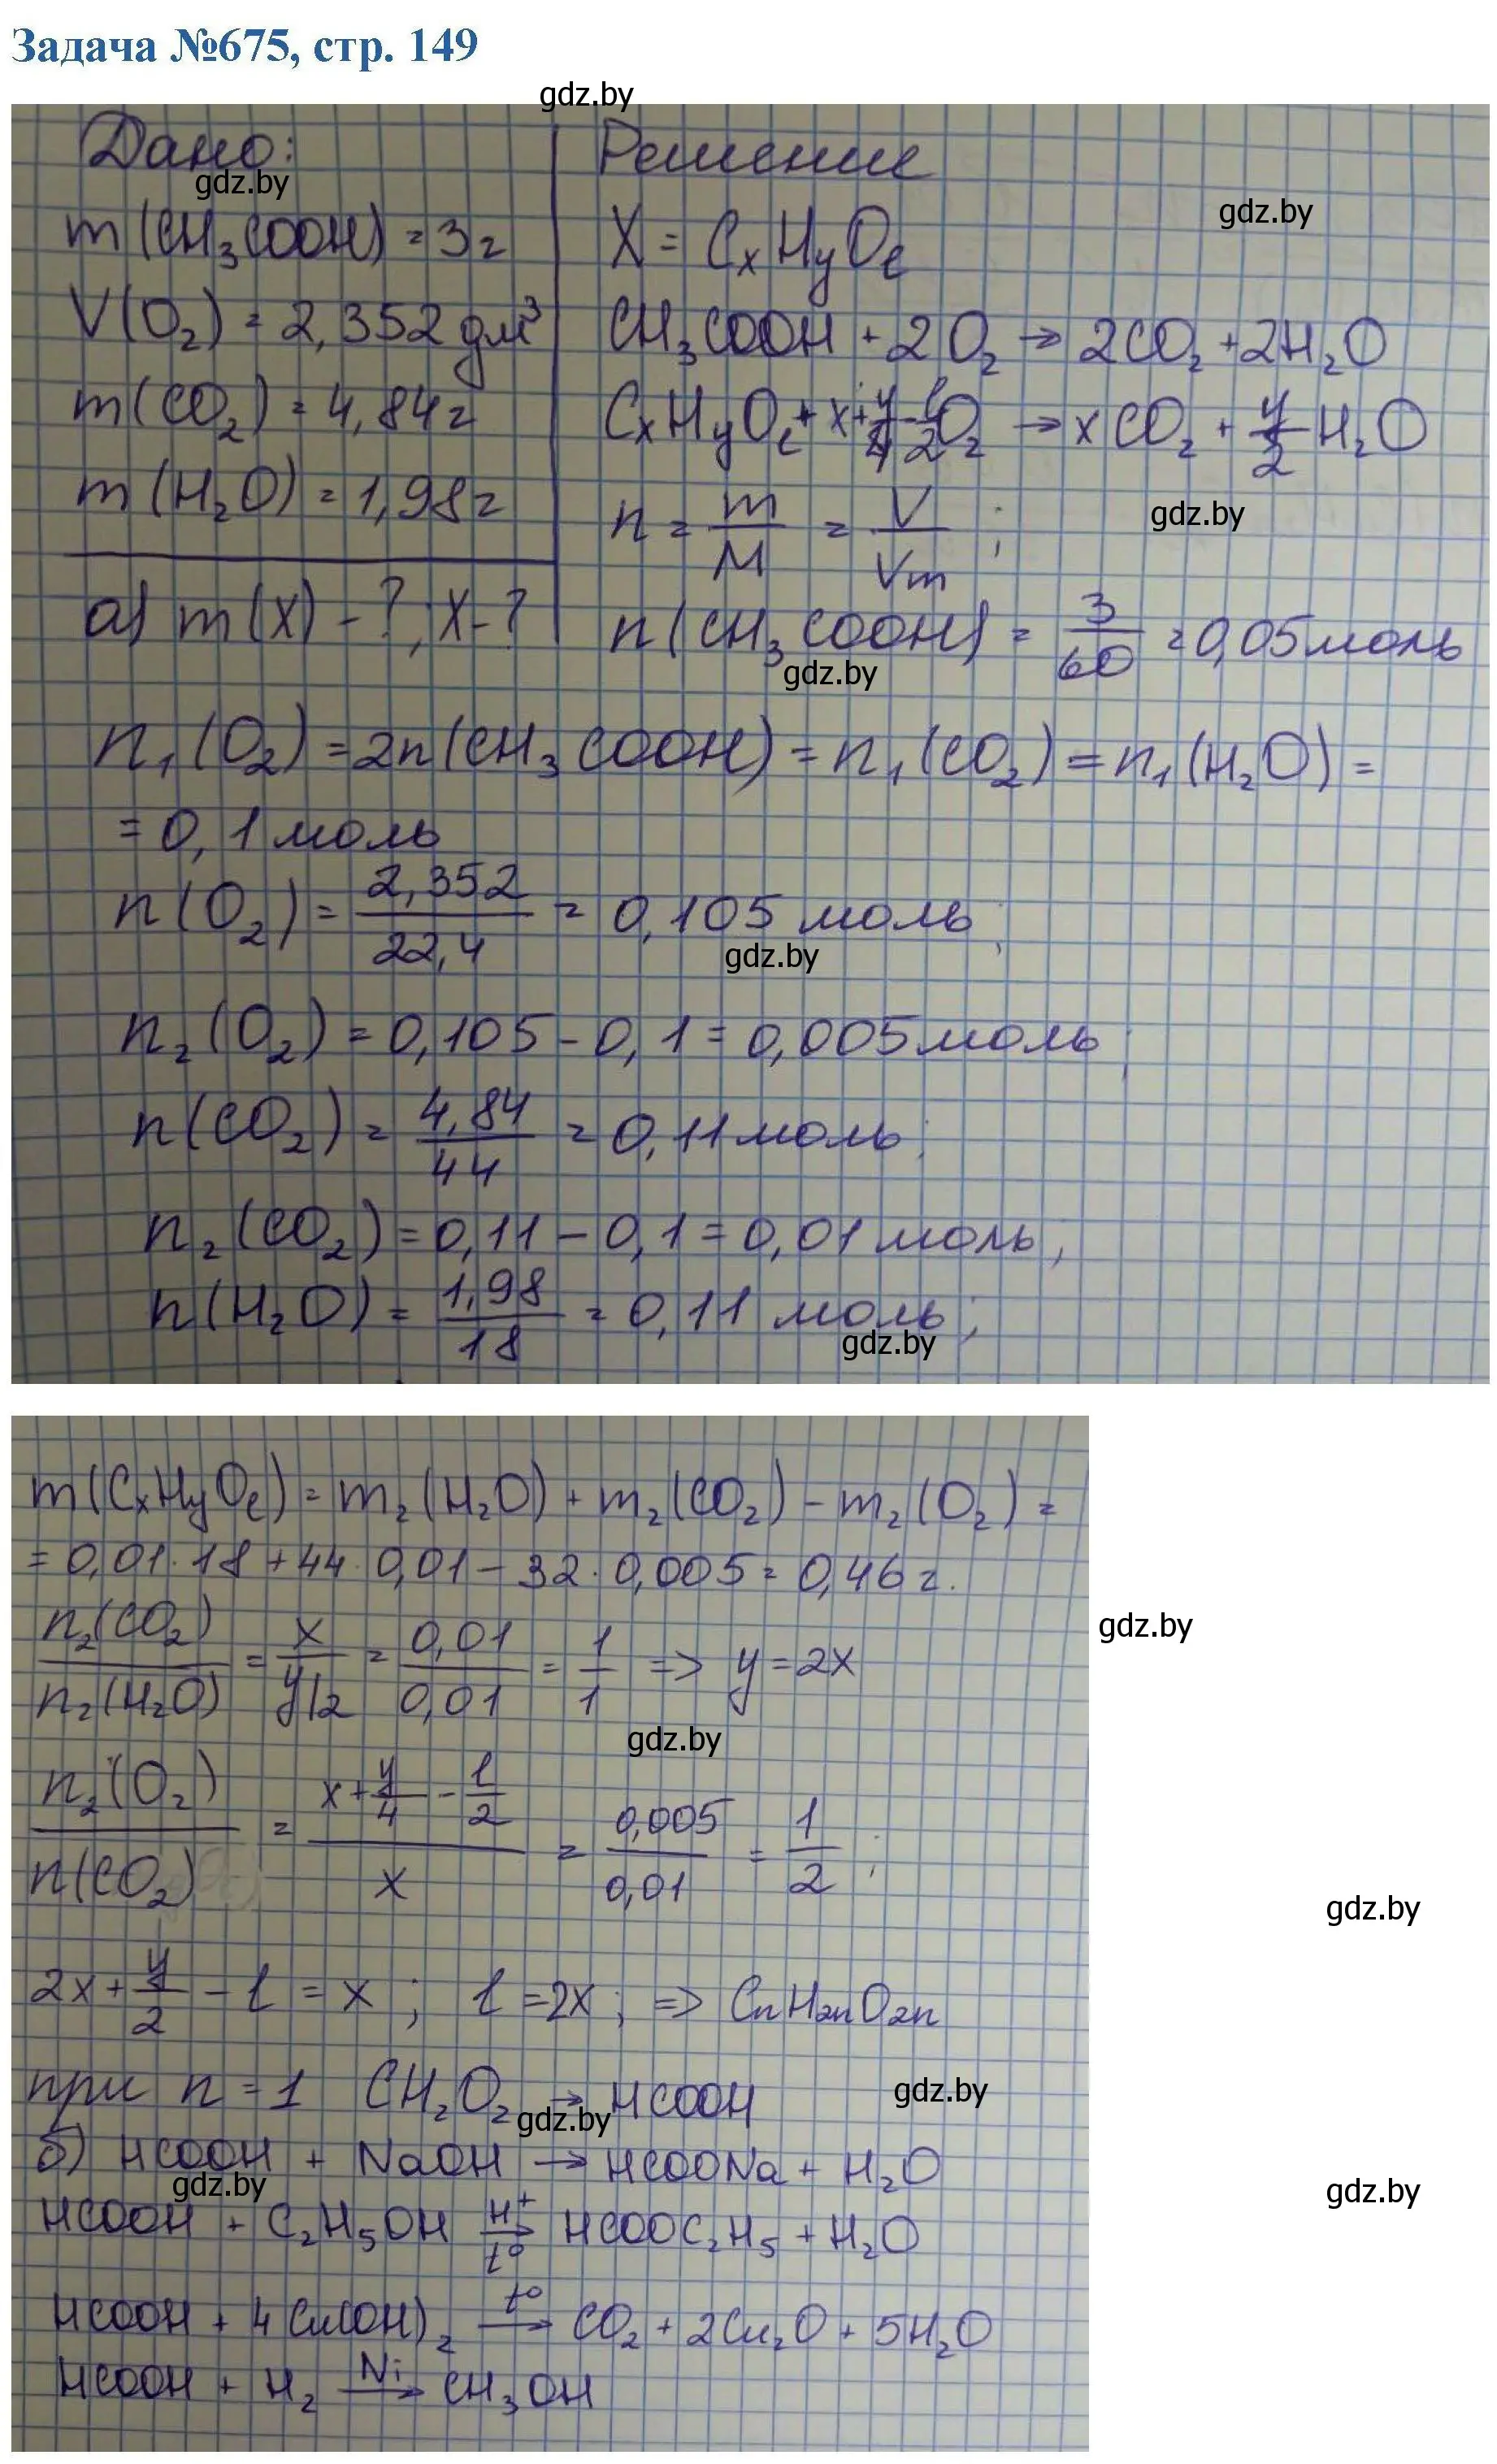 Задача №675, стр. 149
gdz.by
Дано:
gdz.by
m(CH₃COOH) = 3г
V(O₂) = 2,352 дм³
m(CO₂) = 4,84г
m(H₂O) = 1,98г
а) m(X) - ?, X - ?
Решение
gdz.by
X = CₓHyOℓ
CH₃COOH + 2O₂ → 2CO₂ + 2H₂O
CₓHyOℓ + x + y/4 - ℓ/2 O₂ → xCO₂ + y/2 H₂O
n = m/M = V/Vm ;
gdz.by
n(CH₃COOH) = 3/60 = 0,05 моль
gdz.by
n₁(O₂) = 2n(CH₃COOH) = n₁(CO₂) = n₁(H₂O) =
= 0,1 моль
n(O₂) = 2,352/22,4 = 0,105 моль;
gdz.by
n₂(O₂) = 0,105 - 0,1 = 0,005 моль;
n(CO₂) = 4,84/44 = 0,11 моль;
n₂(CO₂) = 0,11 - 0,1 = 0,01 моль;
n(H₂O) = 1,98/18 = 0,11 моль;
gdz.by
m(CₓHyOℓ) = m₂(H₂O) + m₂(CO₂) - m₂(O₂) =
= 0,01·18 + 44·0,01 - 32·0,005 = 0,46 г.
gdz.by
n₂(CO₂)/n₂(H₂O) = x/y/2 = 0,01/0,01 = 1/1 => y = 2x
gdz.by
n₂(O₂)/n(CO₂) = (x + y/4 - ℓ/2)/x = 0,005/0,01 = 1/2 ;
gdz.by
2x + y/2 - ℓ = x ; ℓ = 2x ; => CnH2nO2n
при n = 1 CH₂O₂ → HCOOH
gdz.by
gdz.by
б) HCOOH + NaOH → HCOONa + H₂O
gdz.by
gdz.by
HCOOH + C₂H₅OH H⁺ → t° HCOOC₂H₅ + H₂O
HCOOH + 4Cu(OH)₂ t° → CO₂ + 2Cu₂O + 5H₂O
HCOOH + H₂ Ni → CH₃OH